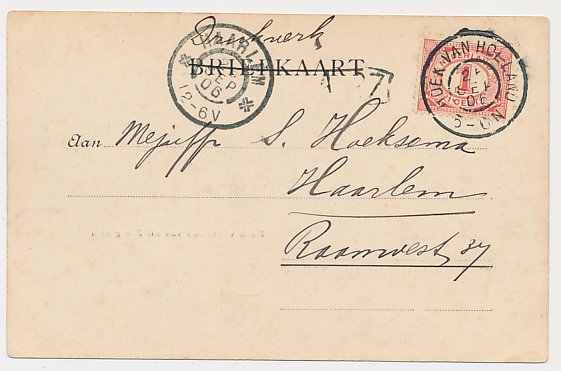 Drukwerk
BRIEFKAART
HAARLEM
SEP
06
12-6V
HOEK VAN HOLLAND
SEP
06
5-6N
1
Aan Mejuffr S. Hoeksema
Haarlem
Raamvest 37